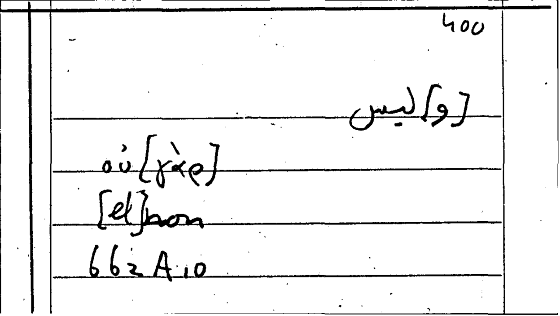 400
[و]ليس
οὐ[γὰρ]
[et]non
662 A 10